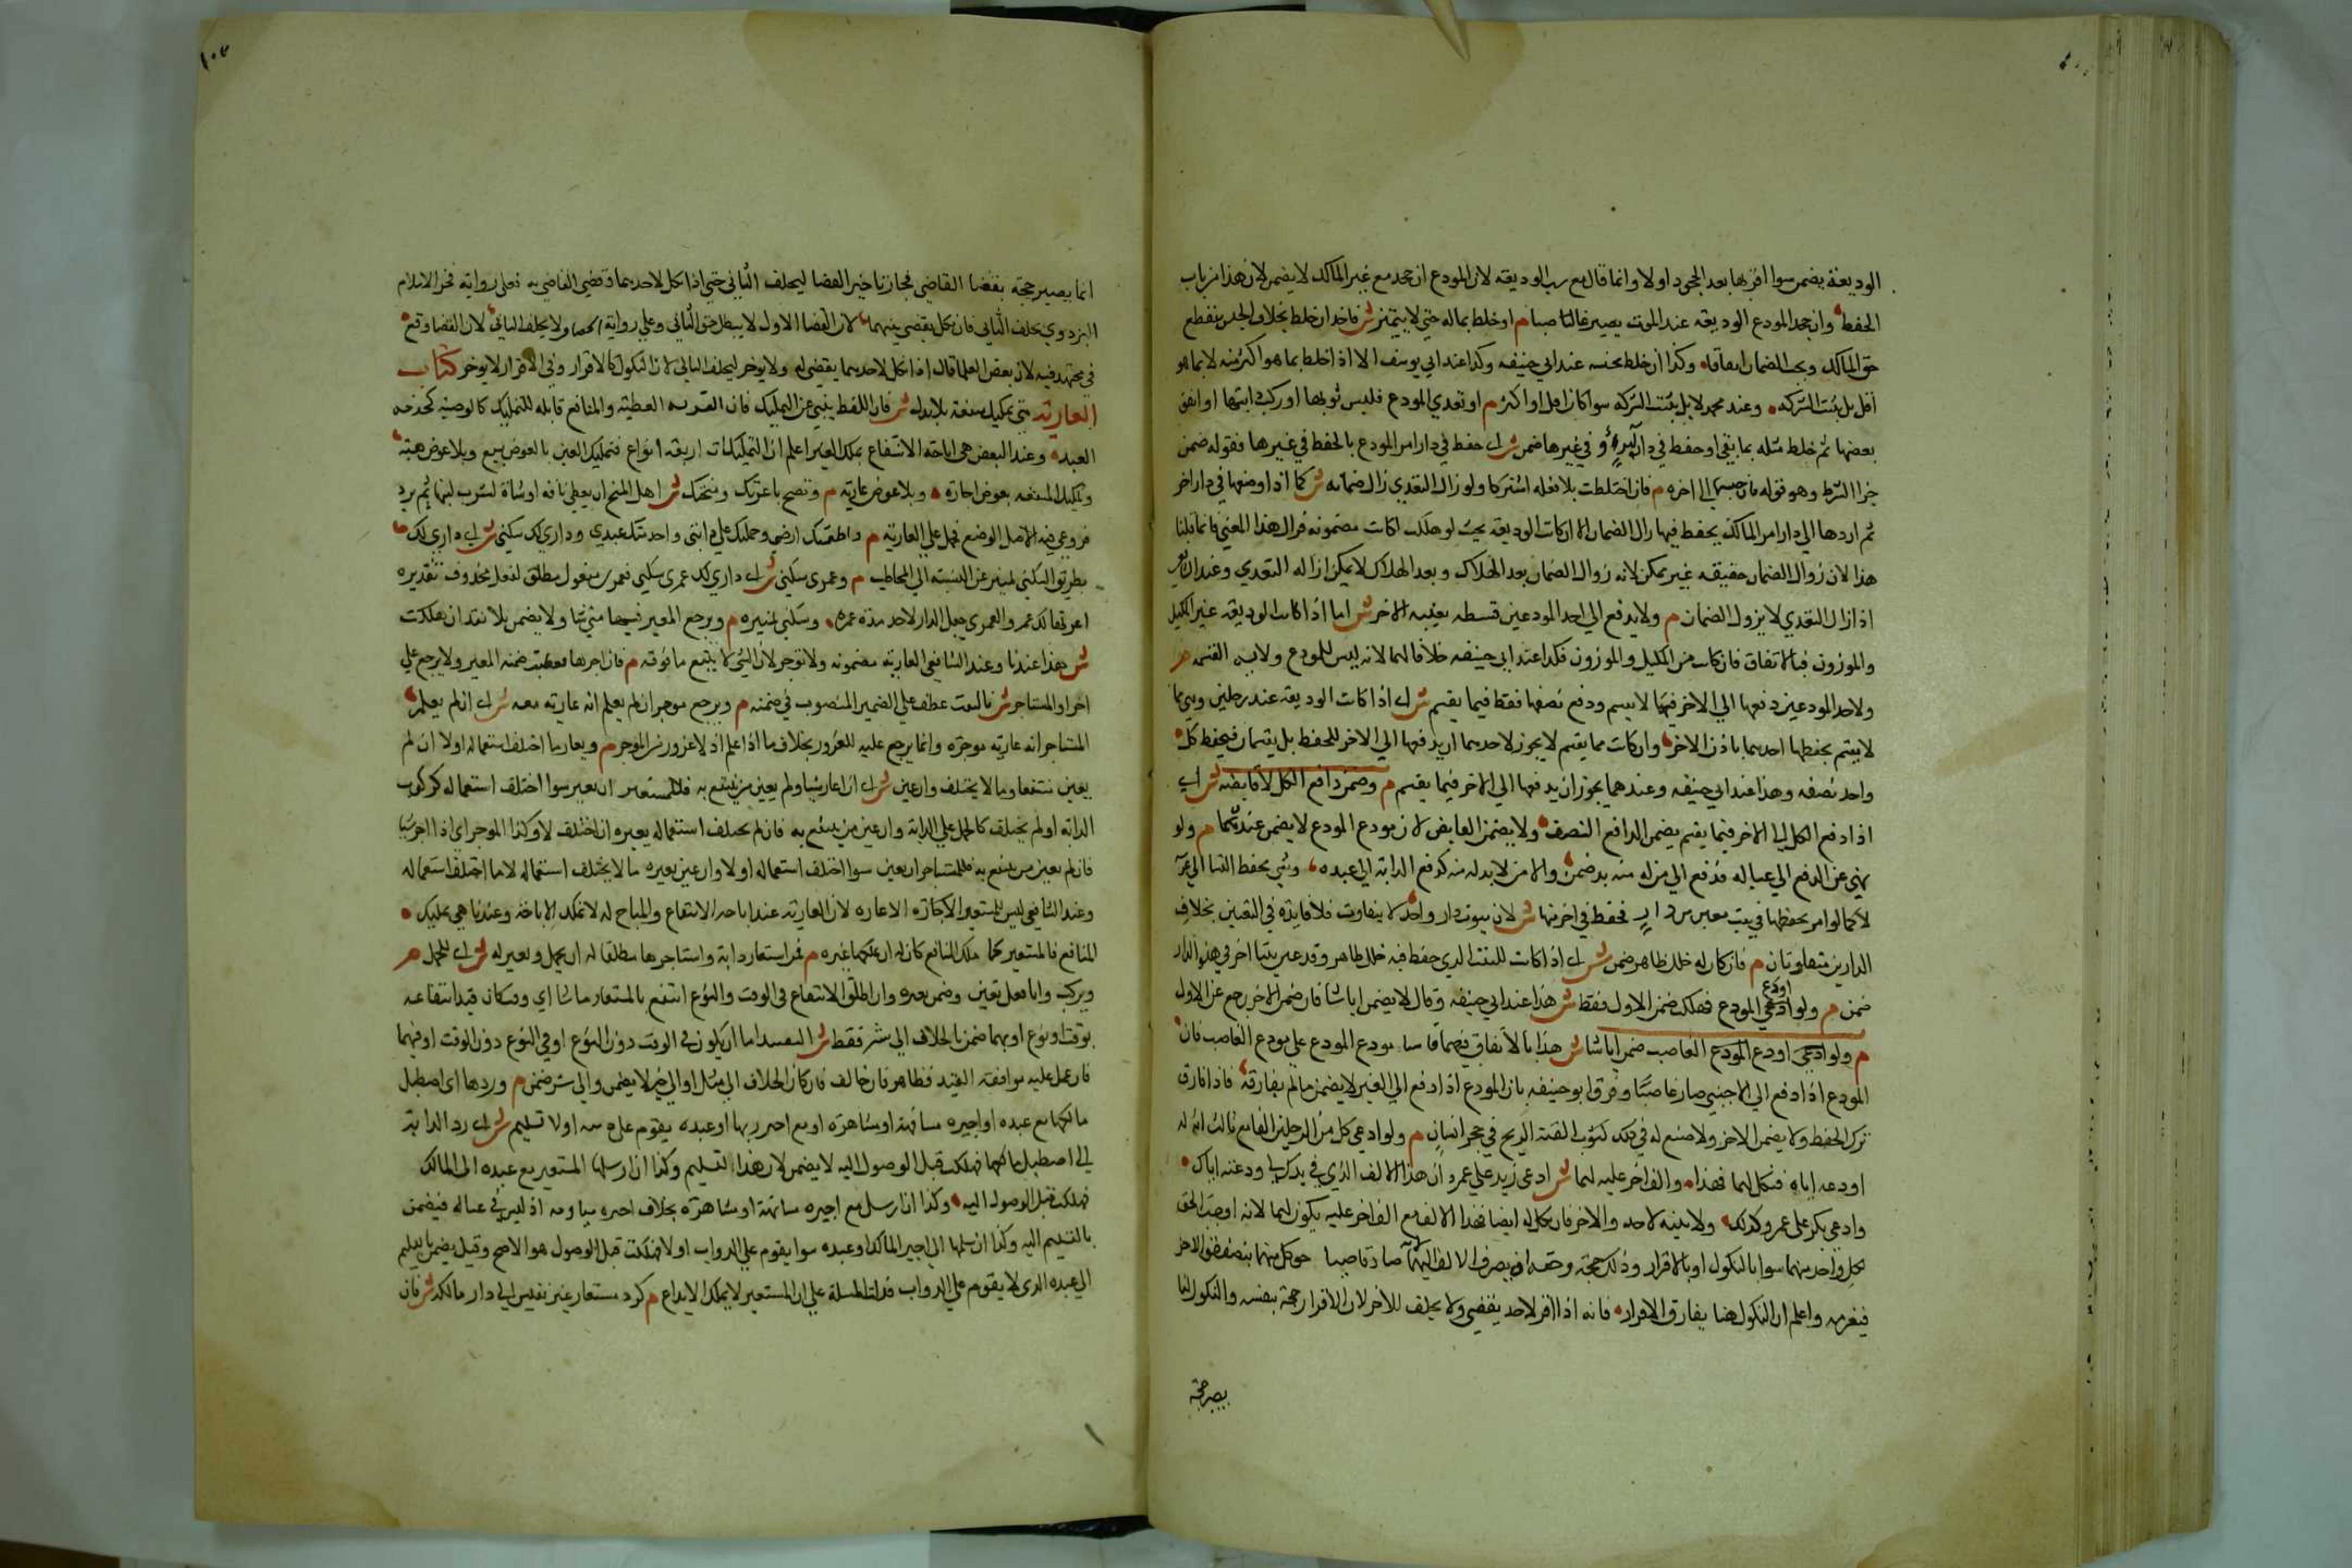 الوديعة يضمن سوا اقر بها بعد الجحود او لا وانما قال مع رب الوديعة لان المودع ان جحد مع غير المالك لا يضمن لان هذا من باب
الحفظ وان جحد المودع الوديعة عند الموت يصير غاصبا م او خلط بماله حتي لا يتميز ش فاخذ ان خلط بخلاف الجنس ينقطع
حق المالك ويجب الضمان اتفاقا وكذا ان خلط بجنسه عند ابي حنيفه وكذا عند ابي يوسف الا اذا خلط بما هو اكثر منه لا بما هو
اقل بل يثبت الشركه وعند محمد لا بل يثبت الشركه سوا كان اقل او اكثر م او تعدي المودع فلبس ثوبها او ركب دابتها او انفق
بعضها ثم خلط مثله بما بقي او حفظ في دار امر به في غيرها ضمن ش اي حفظ في دار امر المودع بالحفظ في غيرها فقوله ضمن
جزا الشرط وهو قوله فان حبسها الي اخره م فان اختلطت بلا فعله اشتركا ولو زال التعدي زال ضمانه ش كما اذا وضعها في دار اخر
ثم اردها الي دار امر المالك بحفظ فيها زال الضمان الا ان كانت الوديعه بحيث لو هلكت لكانت مضمونه فزال هذا المعني فانما قلنا
هذا لان زوال الضمان حقيقه غير ممكن لانه زوال الضمان بعد الهلاك وبعد الهلاك لا يمكن ازاله التعدي وعند الشافعي
اذا زال التعدي لا يزول الضمان م ولا يدفع الي احد المودعين قسطه بغيبه الاخر ش اما اذا كانت الوديعه غير المكيل
والموزون فبالاتفاق فان كانت من المكيل والموزون فكذا عند ابي حنيفه خلافا لهما لانه ليس للمودع ولايه القسمه م
ولاحد المودعين دفعها الي الاخر فيما لا يقسم ودفع نصفها فقط فيما يقسم ش اي اذا كانت الوديعه عند رجلين وهي مما
لا يقسم بحفظها احدهما باذن الاخر وان كانت مما يقسم لا يجوز لاحدهما ان يدفعها الي الاخر للحفظ بل يقتسمان فيحفظ كل
واحد نصفه وهذا عند ابي حنيفه وعندهما يجوز ان يدفعها الي الاخر فيما يقسم م وضمن دافع الكل لا قابضه ش اي
اذا دفع الكل الي الاخر فيما يقسم يضمن الدافع النصف ولا يضمن القابض لان مودع المودع لا يضمن عنده م ولو
نهي عن الدفع الي عياله فدفع الي من له منه بد ضمن والا من لا بد له منه كدفع الدابة الي عبده وشي يحفظ النسا الي عرسه
لا كما لو امر بحفظها في بيت معين من دار فحفظ في اخر منها ش لان بيوت دار واحد لا يتفاوت فلا فايدة في التعين بخلاف
الدارين متفاوتان م فان كان له خلل ظاهر ضمن ش اي اذا كانت للبيت الذي حفظ فيه خلل ظاهر وقد عين بيتا اخر في هذه الدار
ضمن م ولو اودع المودع فهلك ضمن الاول فقط ش هذا عند ابي حنيفه وقالا يضمن ايا شا فان ضمن الاخر رجع عن الاول
م ولو اودع الغاصب ضمن ايا شا ش هذا بالاتفاق فهما قاسا مودع المودع علي مودع الغاصب فان
المودع اذا دفع الي الاجنبي صار غاصبا وفرق ابو حنيفه بان المودع اذا دفع الي الغير لا يضمن ما لم يفارقه فاذا فارق
ترك الحفظ ولا يضمن الاخر ولا صنع له في ذلك كثوب القته الريح في حجر انسان م ولو ادعي كل من الرجلين الفا مع ثالث انه له
اودعه اياه فنكل لهما فهذا والف اخر عليه لهما ش ادعي زيد علي عمرو ان هذا الالف الذي في يدك لي ودعته اياك
وادعي بكر علي عمرو كذلك ولا بينه لاحد والاخر فان نكل له ايضا فهذا الالف مع الف اخر عليه يكون لهما لانه اوجب الحق
لكل واحد منهما سوا بالنكول او بالاقرار وذلك حجة وحقه ان يصرف الالف اليهما صار قاضيا حق كل منهما بنصف حق الاخر
فيغرمه واعلم ان النكول هنا يفارق الاقرار فانه اذا اقر لاحد يقضي ولا يحلف للاخر لان الاقرار حجة بنفسه والنكول انما
يصير حجة
١٠٧
انما يصير حجة بقضا القاضي فجاز تاخير القضا ليحلف الثاني حتي اذا نكل لاحدهما وقضي القاضي به فعلي رواية فخر الاسلام
البزدوي يحلف الثاني فان نكل يقضي بينهما لان القضا الاول لا يبطل حق الثاني وعلي رواية الخصاف ولا يحلف الثاني لان القضا وقع
في مجتهد فيه لان بعض العلما قال اذا نكل لاحدهما يقضي له ولا يوخر ليحلف الثاني لان النكول كالاقرار وفي الاقرار لا يوخر كتاب
العارية هي تمليك منفعة بلا بدل ش فان اللفظ ينبي عن التمليك فان العريه العطية والمنافع قابله للتمليك كالوصية بخدمه
العبد وعند البعض هي اباحة الانتفاع بملك الغير اعلم ان التمليكات اربعة انواع فتمليك العين بالعوض بيع وبلا عوض هبة
وتمليك المنفعه بعوض اجاره وبلا عوض عارية م وتصح باعرتك ومنحتك ش اصل المنح ان يعطي ناقه او شاة ليشرب لبنها ثم يرد
فروعي فيه الاصل الوضع فحمل علي العارية م واطعمتك ارضي وحملتك علي دابتي واخدمتك عبدي وداري لك سكني ش اي داري لك
بطريق السكني تميز عن النسبته الي المخاطب م وعمري سكني ش اي داري لك عمري سكني فعمري مفعول مطلق لفعل محذوف تقديره
اعمرتها لك عمري والعمري جعل الدار لاحد مدة عمره وسكني تمييزه م ويرجع المعير فيها متي شا ولا يضمن بلا تعد ان هلكت
ش هذا عندنا وعند الشافعي العارية مضمونه ولا توجر لان الشي لا يتبع ما فوقه م فان اجرها فعطبت ضمنه المعير ولا يرجع علي
احد او المستاجر ش بالنصب عطف علي الضمير المنصوب في ضمنه م ويرجع موجر ان لم يعلم انه عارية معه ش اي ان لم يعلم
المستاجر انه عارية موجره وانما يرجع عليه للغرور بخلاف ما اذا علم اذ لا غرور من الموجر م ويعار ما اختلف استعماله او لا ان لم
يعين منتفعا وما لا يختلف وان عين ش اي ان اعار شيا ولم يعين من ينتفع به فللمستعير ان يعير سوا اختلف استعماله كركوب
الدابه او لم يختلف كالحمل علي الدابة وان عين من ينتفع به فان لم يختلف استعماله يعيره ان اختلف لا وكذا الموجر اي اذا اجر شيا
فان لم يعين من ينتفع به فللمستاجر ان يعير سوا اختلف استعماله او لا وان عين يعيره ما لا يختلف استعماله لا ما اختلف استعماله
وعند الشافعي ليس للمستعير الاعاره لان العارية عند اباحه الانتفاع والمباح له لا تملك الاباحة وعندنا هي تمليك
المنافع فالمستعير لما ملك المنافع كان له ان يملكها غيره م فمن استعار دابة واستاجرها مطلقا له ان يحمل ويعير له ش اي للحمل م
ويركب وايا فعل تعين وضمن بغيره وان اطلق الانتفاع في الوقت والنوع انتفع بالمستعار ما شا اي وقت كان قيد انتفاعه
بوقت او نوع او بهما ضمن بالخلاف الي شر فقط ش التقييد اما ان يكون في الوقت دون النوع او في النوع دون الوقت او فيهما
فان عمل عليه موافقة القيد فظاهر فان خالف فان كان الخلاف الي مثل او الي خير لا يضمن والي شر ضمن م وردها اي اصطبل
مالكها مع عبده او اجيره مسانهة او مشاهرة او مع اجير ربها او عبده يقوم عليه او لا تسليم ش اي رد الدابة
الي اصطبل مالكها فهلكت قبل الوصول اليه لا يضمن لان هذا تسليم وكذا ان ارسلها المستعير مع عبده الي المالك
فهلكت قبل الوصول اليه وكذا ان ارسل مع اجيره مسانهة او مشاهرة بخلاف اجيره مياومه اذ ليس في عياله فيضمن
بالتسليم اليه وكذا ان سلمها الي اجير المالك او عبده سوا يقوم علي الدواب او لا فهلكت قبل الوصول هو الاصح وقيل يضمن بتسليم
الي عبده الذي لا يقوم علي الدواب فدلت المسلة علي ان المستعير لا يملك الايداع م كرد مستعار غير نفيس الي دار مالكه ش فان